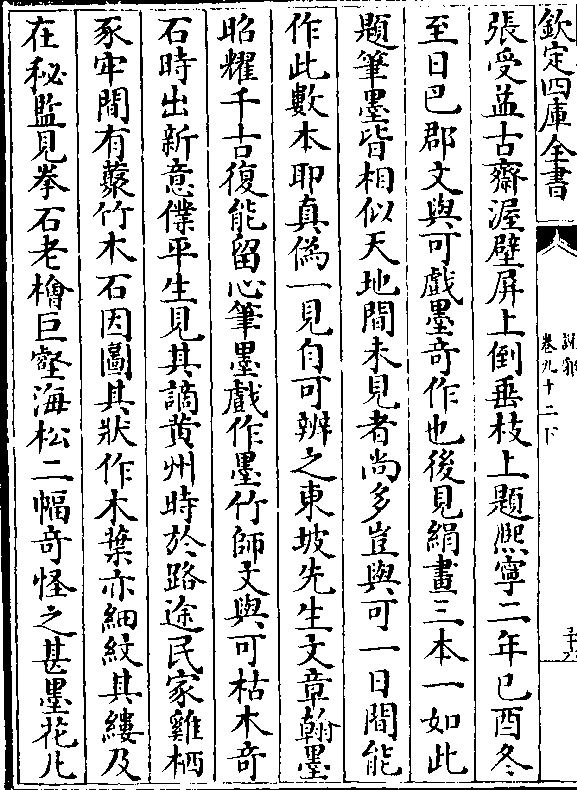 欽定四庫全書
說郛
卷九十二下
張受益古齋渥壁屏上倒垂枝上題熈寧二年巳酉冬
至日巴郡文與可戲墨竒作也後見絹畫三本一如此
題筆墨皆相似天地間未見者尚多豈與可一日間能
作此數本耶真偽一見自可辨之東坡先生文章翰墨
昭耀千古復能留心筆墨戲作墨竹師文與可枯木竒
石時出新意僕平生見其謫黄州時於路途民家雞栖
豕牢間有藂竹木石因圖其狀作木葉亦細紋其縷及
在秘監見拳石老檜巨壑海松二幅竒怪之甚墨花凡